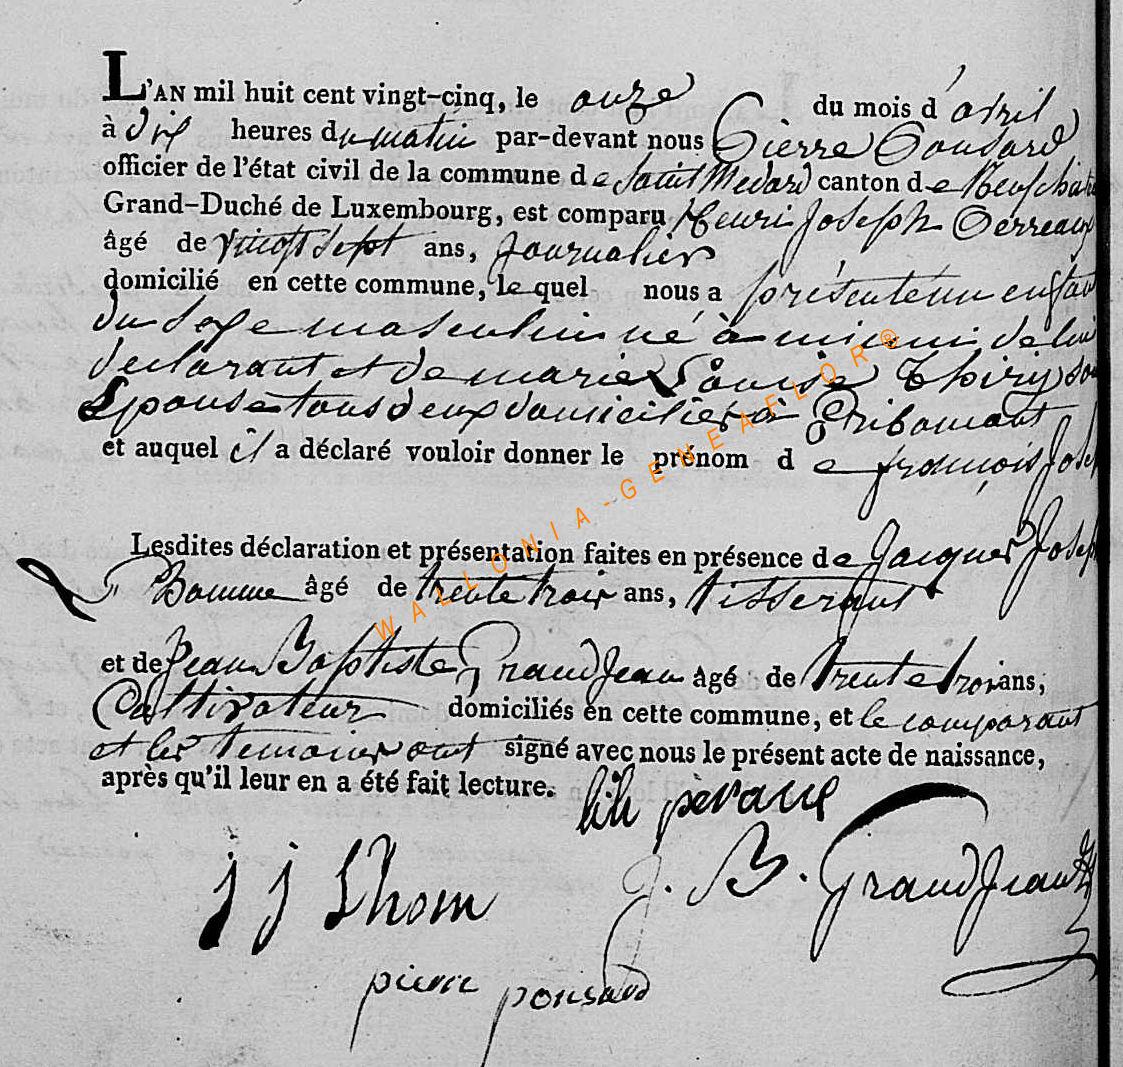 L'AN mil huit cent vingt-cinq, le onze du mois d'avril
à dix heures du matin par-devant nous Pierre Ponsard
officier de l'état civil de la commune de Saint Medard canton de Neufchat
Grand-Duché de Luxembourg, est comparu Henri Joseph Perreaux
âgé de vingt sept ans, journalier
domicilié en cette commune, lequel nous a présenté un enfan
du sexe masculin né à minui de lui
declarant et de marie Louise Thiry so
Epouse tous deux domicilier à Gribomont
et auquel il a déclaré vouloir donner le prénom de françois Jose
Lesdites déclaration et présentation faites en présence de Jacques Joseph
Lhomme âgé de trente trois ans, tisserant
et de Jean Baptiste Grandjean âgé de trente trois ans,
Cultivateur domiciliés en cette commune, et le comparant
et les temoins ont signé avec nous le présent acte de naissance,
après qu'il leur en a été fait lecture.
j j Lhom J. B. Grandjean
pierre ponsard
WALLONIA-GENEAFLOR®